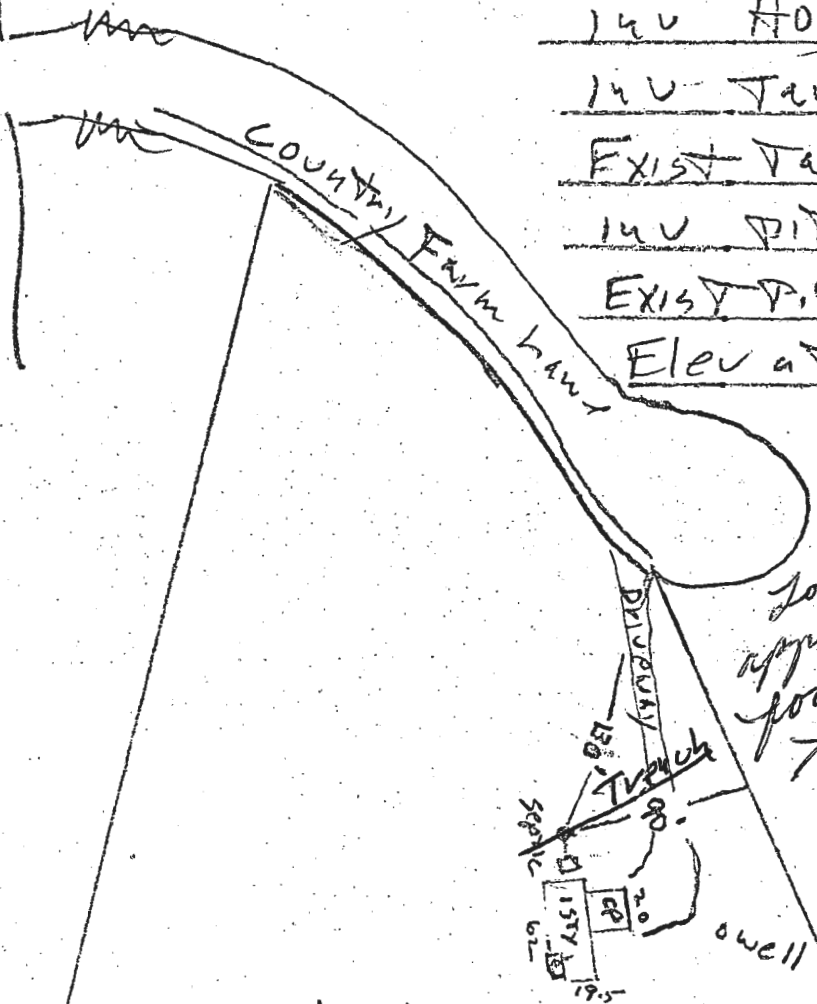 Inv Ho
Inv Ta
Exist Ta
Inv Pi
Exist Pi
Elevat
Country Farm Lane
Driveway
Trench
Septic
1 STY
CP
20
62
19.5
well